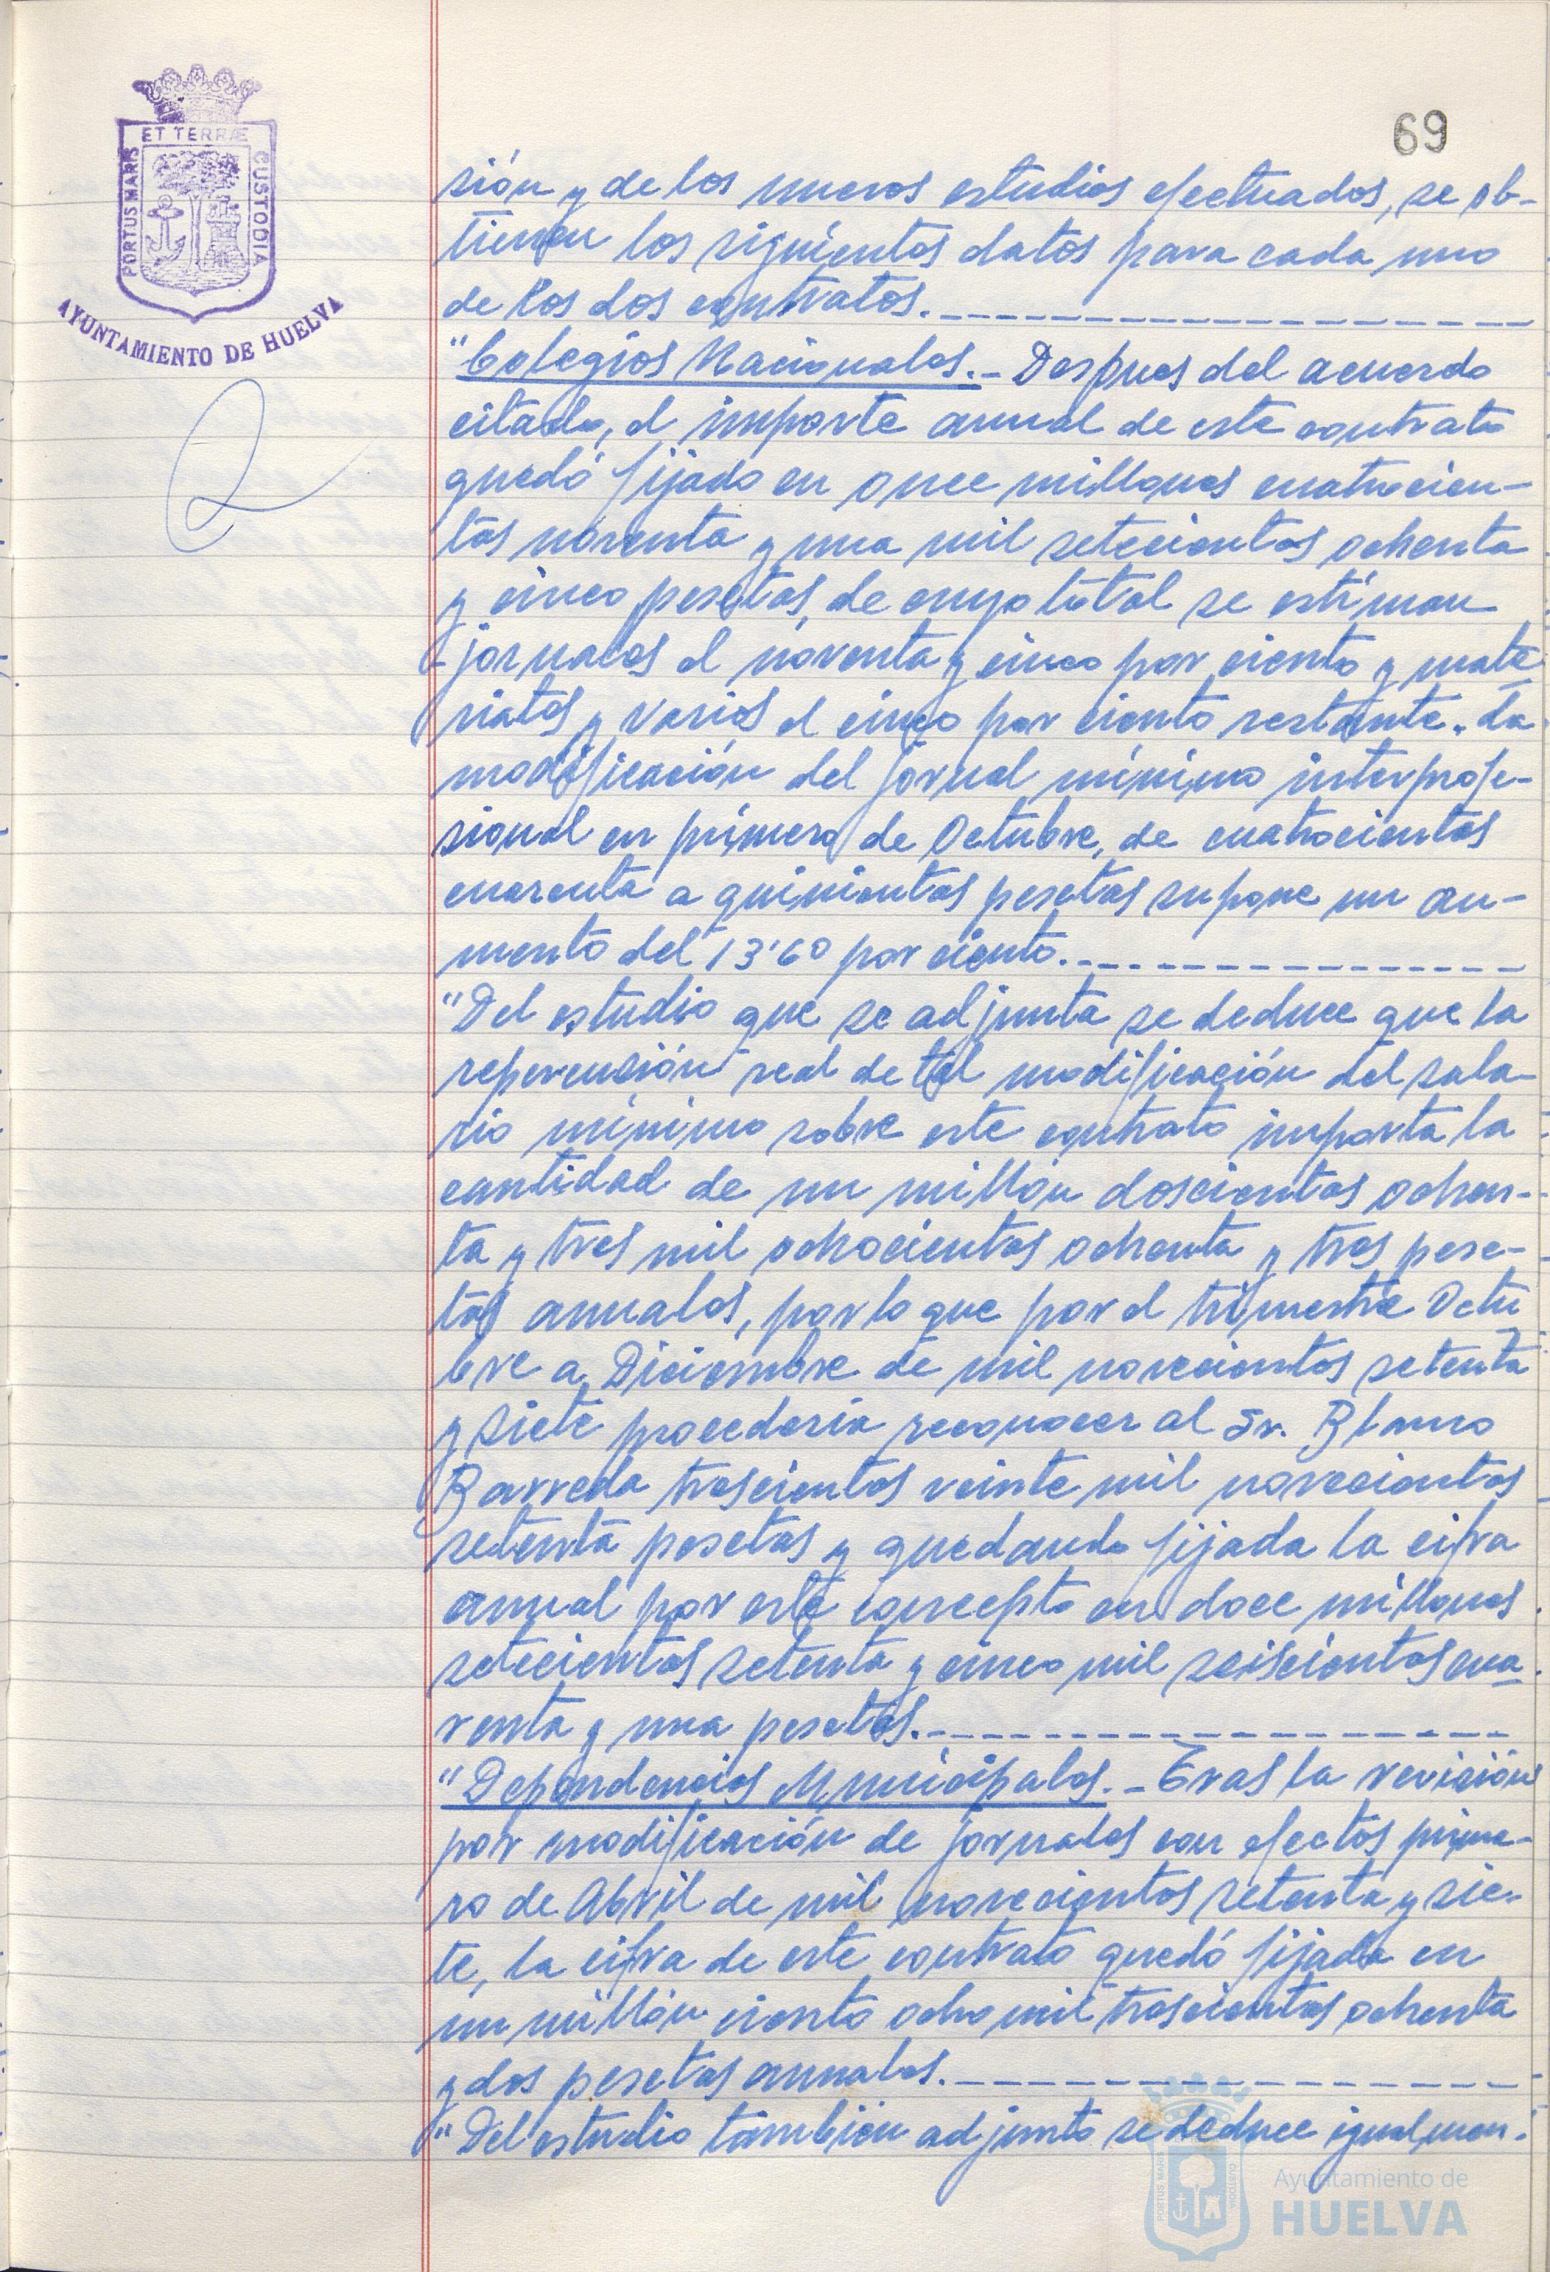 69
ET TERRÆ
PORTUS MARIS
CUSTODIA
AYUNTAMIENTO DE HUELVA
sión y de los nuevos estudios efectuados, se ob-
tienen los siguientes datos para cada uno
de los dos contratos.
"Colegios Nacionales.- Despues del acuerdo
citado, el importe anual de este contrato
quedó fijado en once millones cuatrocien-
tas noventa y una mil setecientas ochenta
y cinco pesetas, de cuyo total se estiman
jornales el noventa y cinco por ciento y mate
riales y varios el cinco por ciento restante. La
modificación del jornal mínimo interprofe-
sional en primero de Octubre, de cuatrocientas
cuarenta a quinientas pesetas supone un au-
mento del 13'60 por ciento.
"Del estudio que se adjunta se deduce que la
repercusión real de tal modificación del sala-
rio mínimo sobre este contrato importa la
cantidad de un millón doscientas ochen-
ta y tres mil ochocientas ochenta y tres pese-
tas anuales, por lo que por el trimestre Octu
bre a Diciembre de mil novecientos setenta
y siete procedería reconocer al Sr. Blanco
Barreda trescientas veinte mil novecientas
setenta pesetas y quedando fijada la cifra
anual por este concepto en doce millones
setecientas setenta y cinco mil seiscientas cua
renta y una pesetas.
"Dependencias Municipales.- Tras la revisión
por modificación de jornales con efectos prime-
ro de Abril de mil novecientos setenta y sie-
te, la cifra de este contrato quedó fijada en
un millón ciento ocho mil trescientas ochenta
y dos pesetas anuales.
"Del estudio también adjunto se deduce igualmen-
Ayuntamiento de
HUELVA